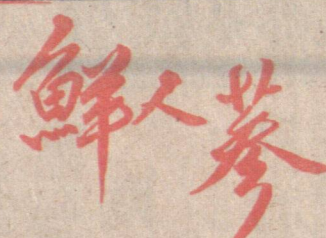 鮮人蔘